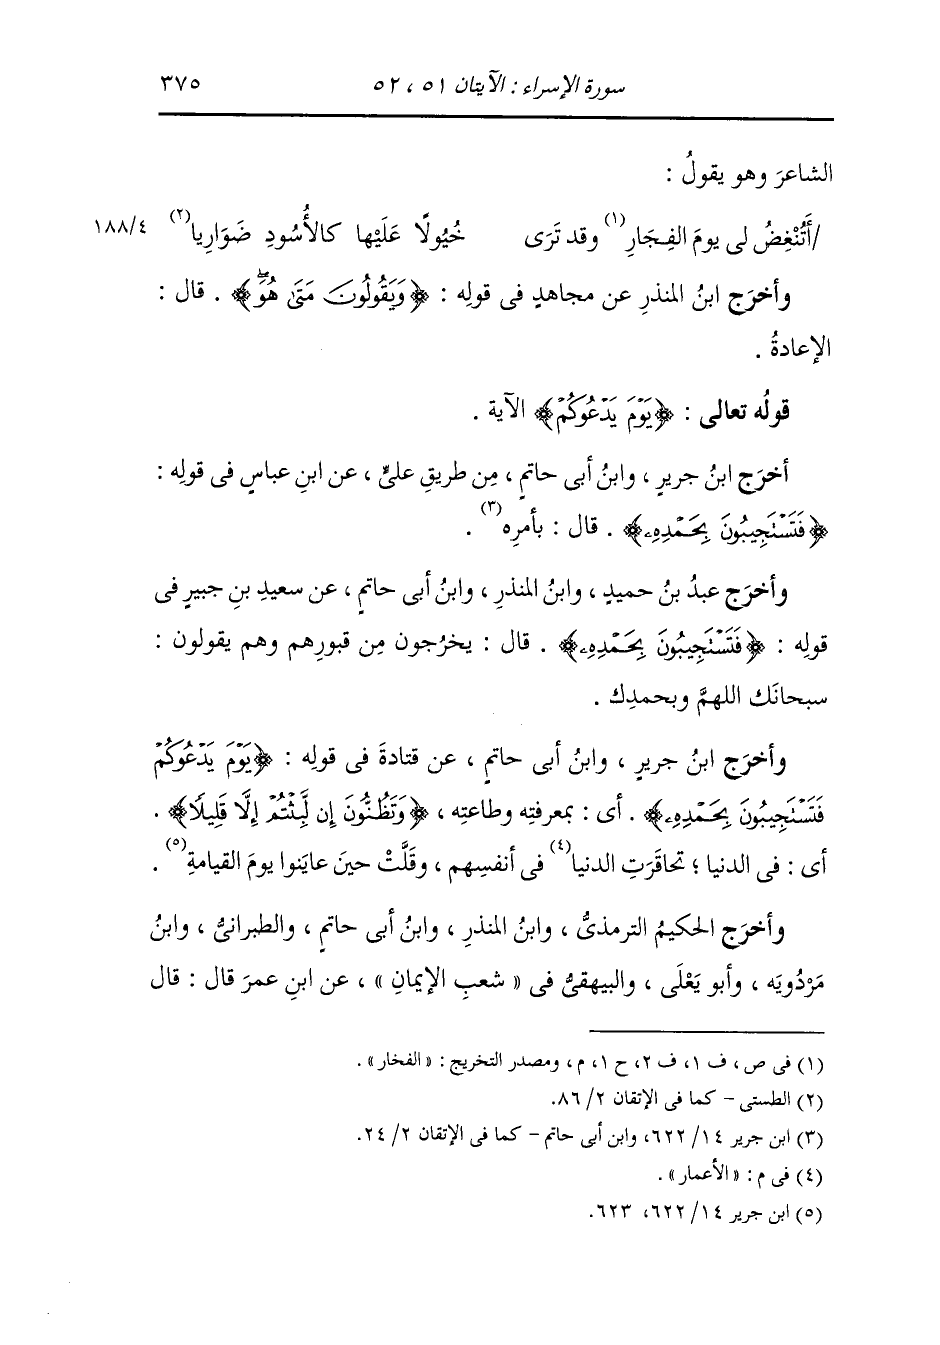 سورة الإسراء : الآيتان ٥١ ، ٥٢ ٣٧٥
الشاعرَ وهو يقولُ :
/أَتُنْغِضُ لى يومَ الفِجَارِ(١) وقد تَرَى خُيُولًا عَلَيْها كالأُسُودِ ضَوَارِيا(٢) ١٨٨/٤
وأخرَج ابنُ المنذرِ عن مجاهدٍ فى قولِه : ﴿وَيَقُولُونَ مَتَىٰ هُوَۖ﴾ . قال :
الإعادةُ .
قولُه تعالى : ﴿يَوْمَ يَدْعُوكُمْ﴾ الآية .
أخرَج ابنُ جريرٍ ، وابنُ أبى حاتمٍ ، مِن طريقِ علىٍّ ، عن ابنِ عباسٍ فى قولِه :
﴿فَتَسْتَجِيبُونَ بِحَمْدِهِۦ﴾ . قال : بأمرِه(٣) .
وأخرَج عبدُ بنُ حميدٍ ، وابنُ المنذرِ ، وابنُ أبى حاتمٍ ، عن سعيدِ بنِ جبيرٍ فى
قولِه : ﴿فَتَسْتَجِيبُونَ بِحَمْدِهِۦ﴾ . قال : يخرُجون مِن قبورِهم وهم يقولون :
سبحانَك اللهمَّ وبحمدِك .
وأخرَج ابنُ جريرٍ ، وابنُ أبى حاتمٍ ، عن قتادةَ فى قولِه : ﴿يَوْمَ يَدْعُوكُمْ
فَتَسْتَجِيبُونَ بِحَمْدِهِۦ﴾ . أى : بمعرفتِه وطاعتِه ، ﴿وَتَظُنُّونَ إِن لَّبِثْتُمْ إِلَّا قَلِيلًا﴾ .
أى : فى الدنيا ؛ تحاقَرَتِ الدنيا(٤) فى أنفسِهم ، وقَلَّتْ حينَ عايَنوا يومَ القيامةِ(٥) .
وأخرَج الحكيمُ الترمذىُّ ، وابنُ المنذرِ ، وابنُ أبى حاتمٍ ، والطبرانىُّ ، وابنُ
مَرْدُويَه ، وأبو يَعْلَى ، والبيهقىُّ فى « شعبِ الإيمانِ » ، عن ابنِ عمرَ قال : قال
(١) فى ص ، ف ١ ، ف ٢ ، ح ١ ، م ، ومصدر التخريج : « الفخار » .
(٢) الطستى – كما فى الإتقان ٢/ ٨٦.
(٣) ابن جرير ١٤/ ٦٢٢، وابن أبى حاتم – كما فى الإتقان ٢/ ٢٤.
(٤) فى م : « الأعمار » .
(٥) ابن جرير ١٤/ ٦٢٢، ٦٢٣.